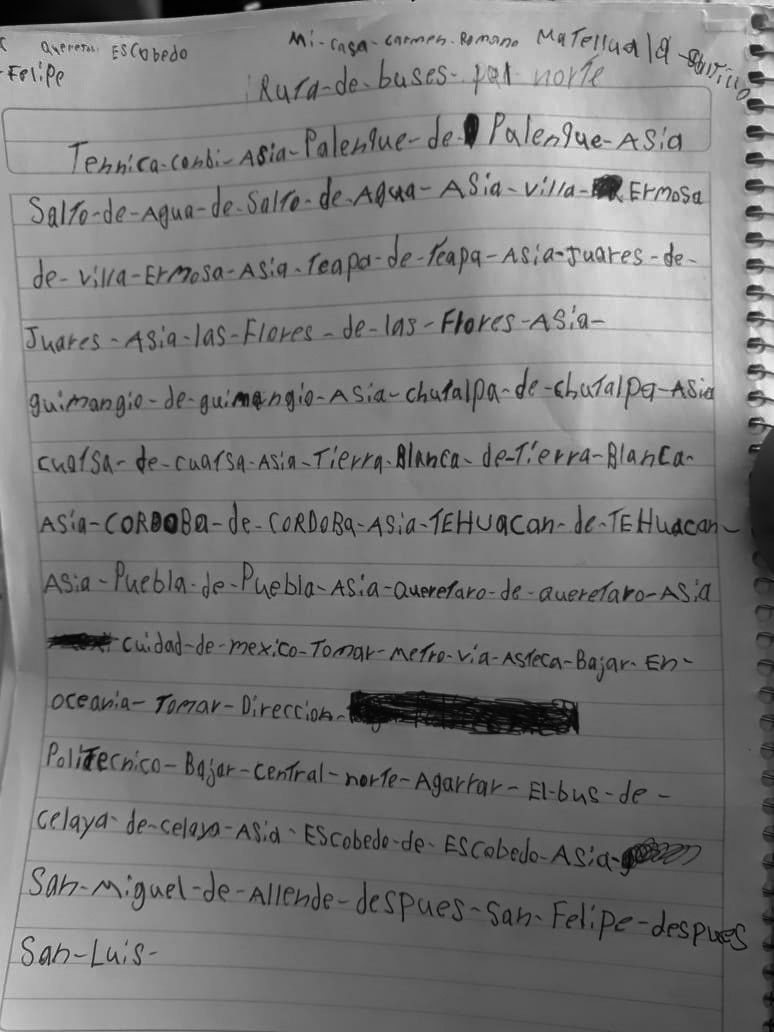 Queretaro Escobedo
Felipe
Mi-casa-carmen-Romano Matehuala-Saltillo
Ruta-de-buses-par norte
Tehnica-combi-Asia-Palenque-de Palenque-Asia
Salto-de-Agua-de-Salto-de-Agua-Asia-villa-Ermosa
de-villa-Ermosa-Asia-Teapa-de-Teapa-Asia-Juares-de-
Juares-Asia-las-Flores-de-las-Flores-Asia-
guimangio-de-guimangio-Asia-chutalpa-de-chutalpa-Asia
cuatsa-de-cuatsa-Asia-Tierra-Blanca-de-Tierra-Blanca-
Asia-CORDOBa-de-CORDOBa-Asia-TEHuacan-de-TEHuacan-
Asia-Puebla-de-Puebla-Asia-queretaro-de-queretaro-Asia
cuidad-de-mexico-Tomar-metro-via-Asteca-Bajar-En-
oceania-Tomar-Direccion-
Politecnico-Bajar-central-norte-Agarrar-El-bus-de-
celaya-de-celaya-Asia-Escobedo-de-Escobedo-Asia-
San-Miguel-de-Allende-despues-San-Felipe-despues
San-Luis-